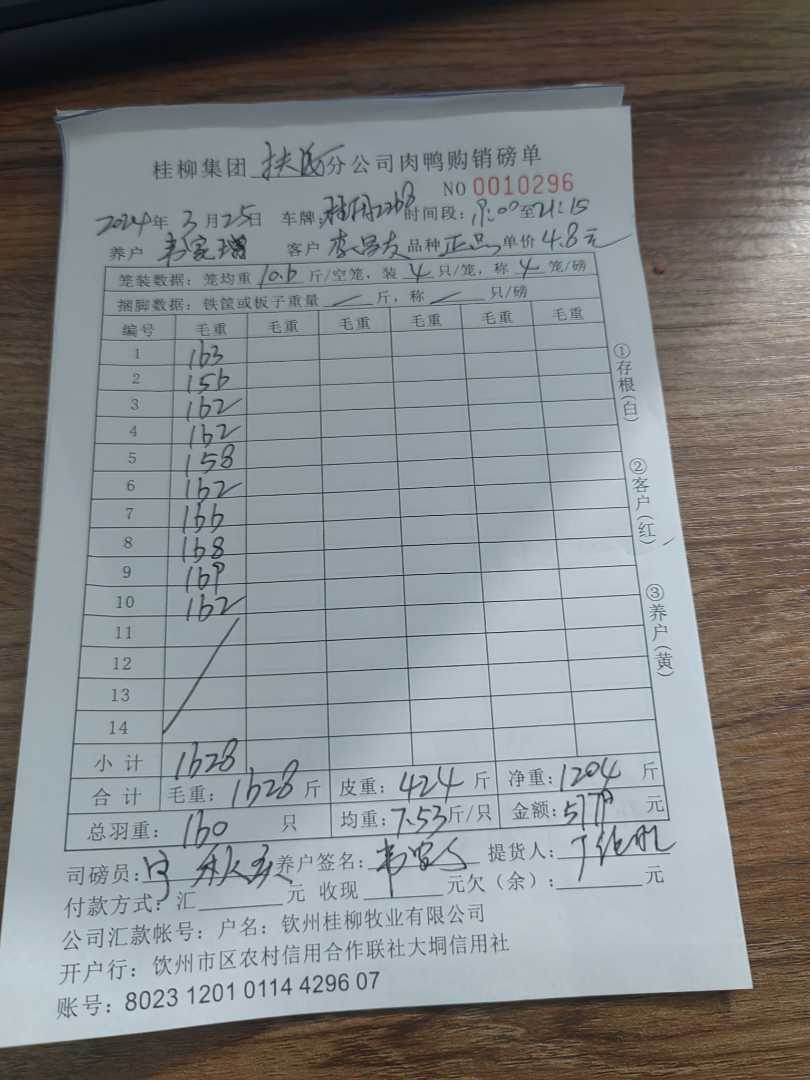 桂柳集团 扶 分公司肉鸭购销磅单
NO 0010296
2024年3月25日 车牌: 时间段: 至21:15
养户 客户 李昌友 品种 正品 单价 4.8元
笼装数据: 笼均重 10.6 斤/空笼, 装 4 只/笼, 称 4 笼/磅
捆脚数据: 铁筐或板子重量 斤, 称 只/磅
编号 毛重 毛重 毛重 毛重 毛重 毛重
1 163
2 156
3 162
4 162
5 158
6 162
7 166
8 168
9 169
10 162
11
12
13
14
小计 1628
合计 毛重: 1628 斤 皮重: 424 斤 净重: 1204 斤
总羽重: 160 只 均重: 7.53 斤/只 金额: 5779 元
司磅员: 养户签名: 提货人:
付款方式: 汇 元 收现 元欠(余): 元
公司汇款帐号: 户名: 钦州桂柳牧业有限公司
开户行: 钦州市区农村信用合作联社大垌信用社
账号: 8023 1201 0114 4296 07
①存根(白)
②客户(红)
③养户(黄)